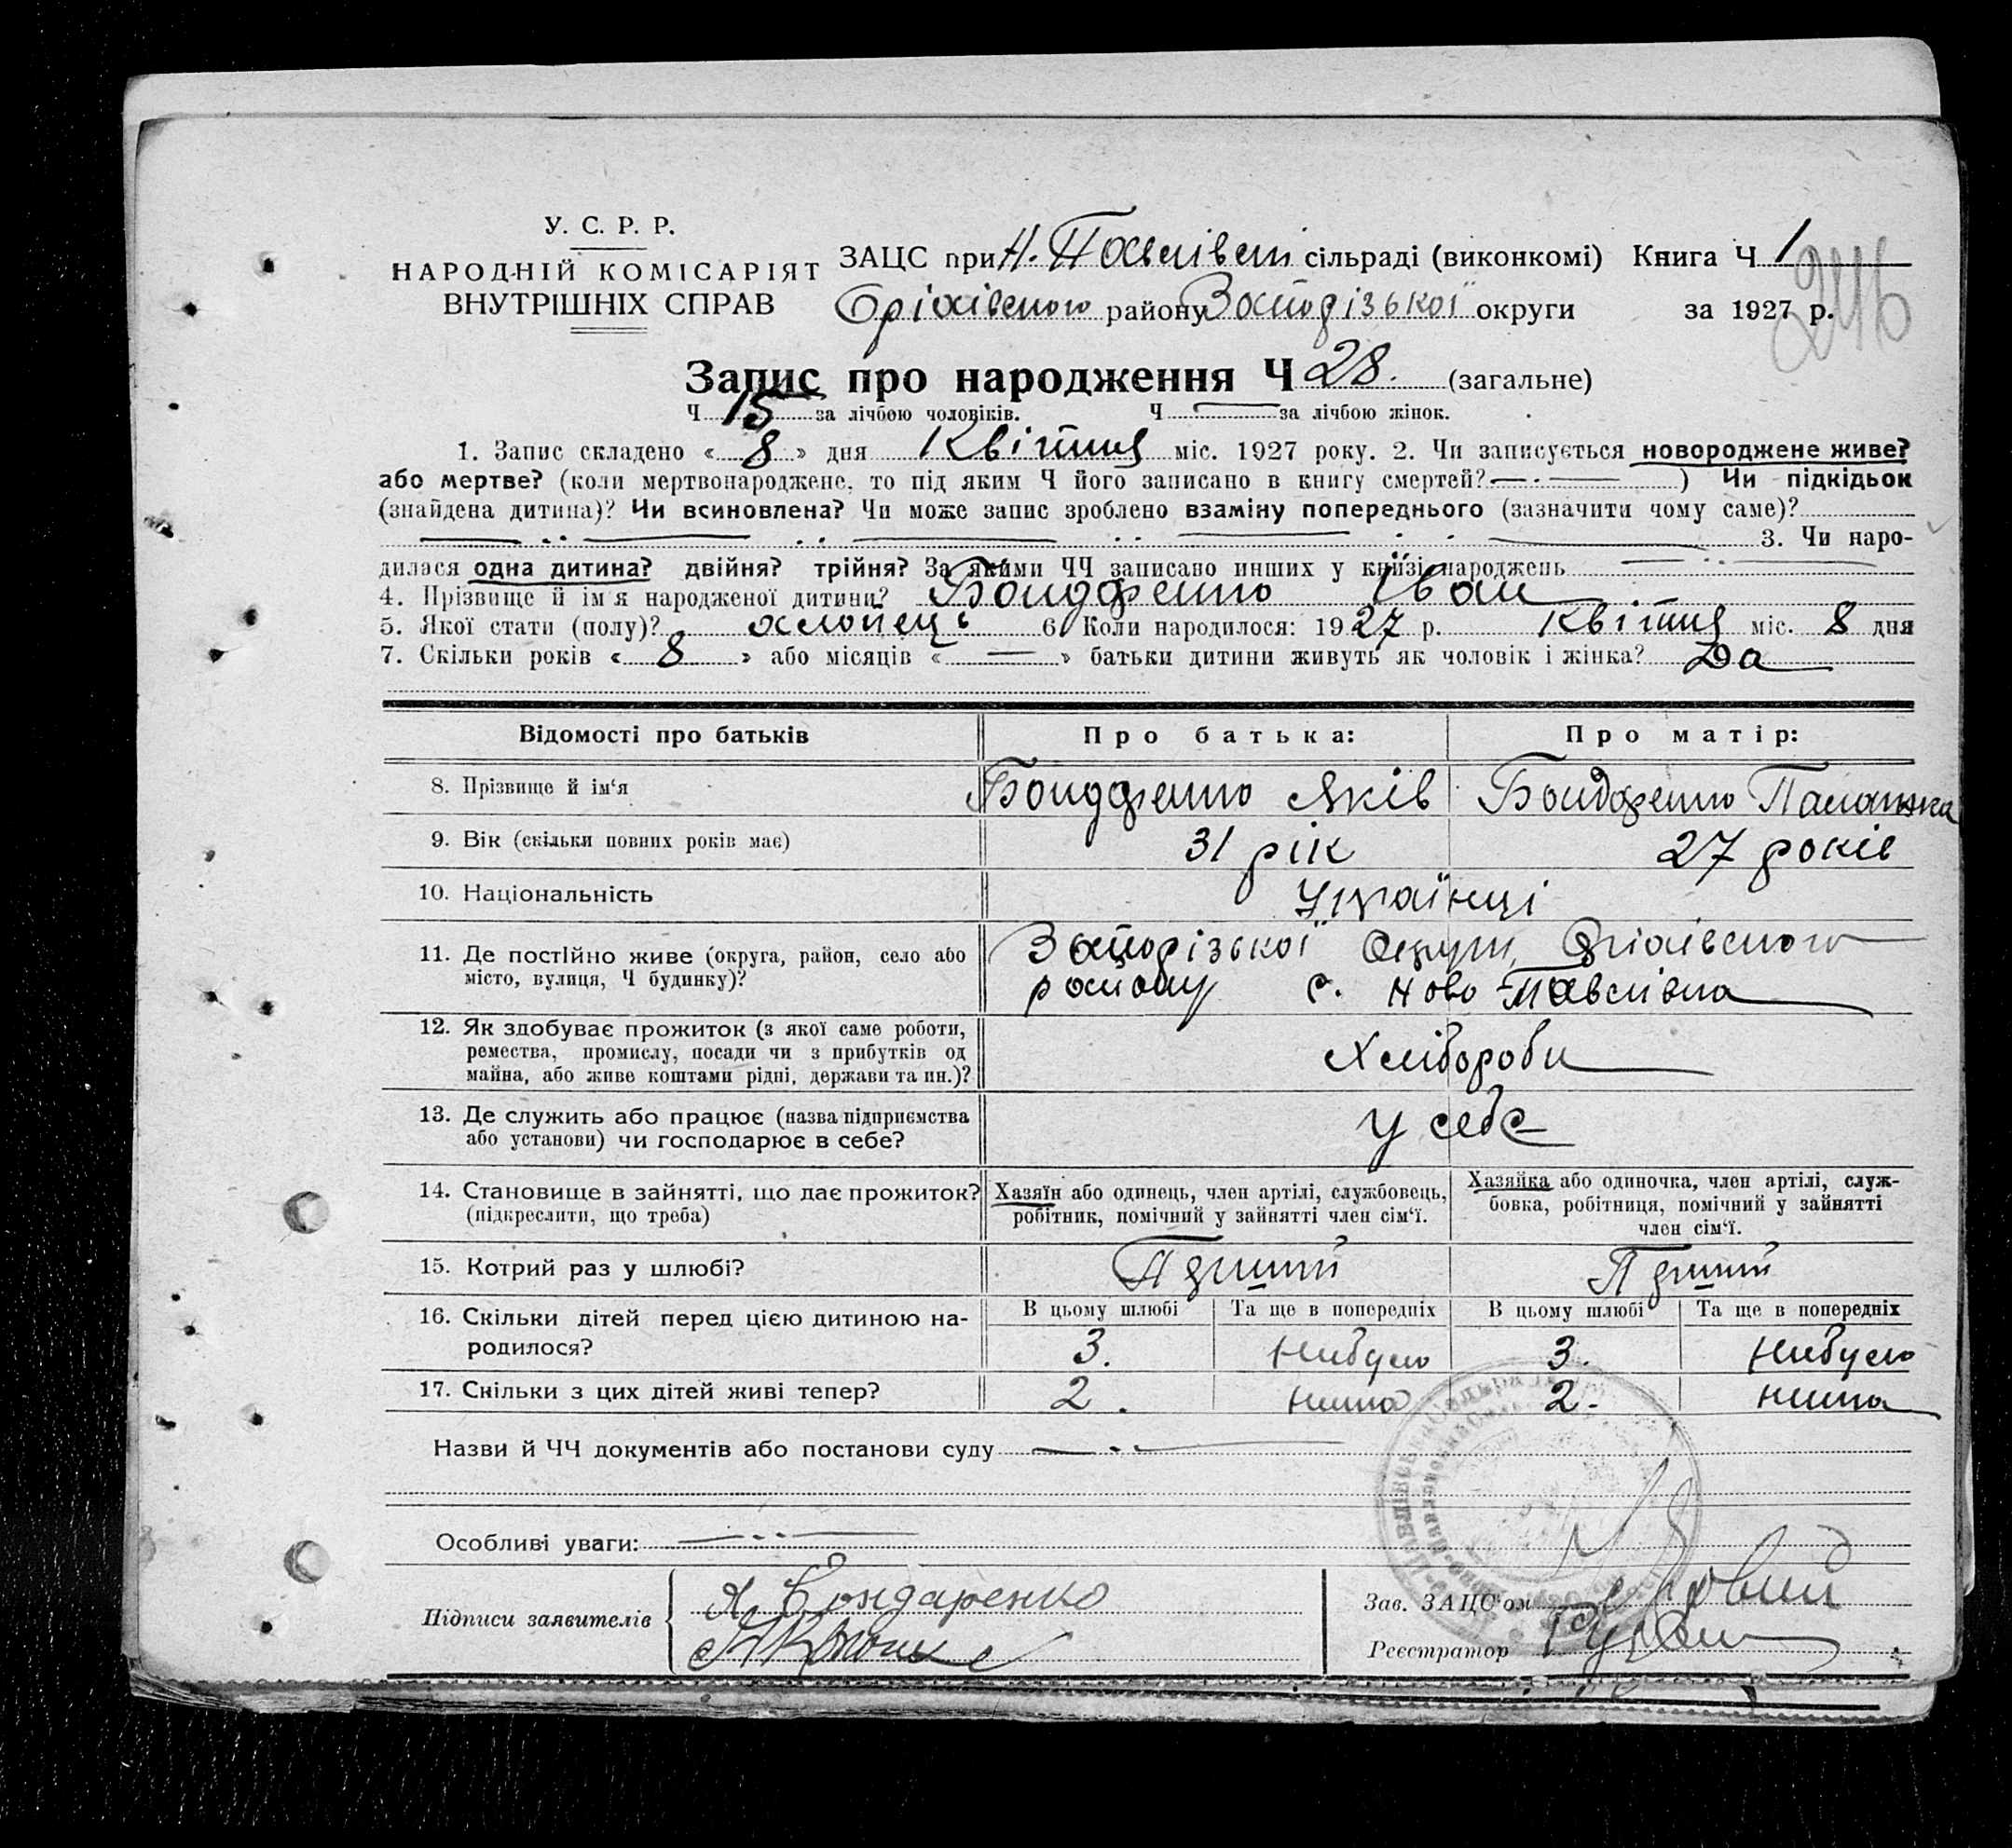 У. С. Р. Р.
НАРОДНІЙ КОМІСАРІЯТ
ВНУТРІШНІХ СПРАВ
ЗАЦС при Н. Павлівській сільраді (виконкомі) Книга Ч 1
Оріхівського району Запорізької округи за 1927 р.
246
Запис про народження Ч 28. (загальне)
Ч 15 за лічбою чоловіків. Ч — за лічбою жінок.
1. Запис складено « 8 » дня Квітня міс. 1927 року. 2. Чи записується новороджене живе?
або мертве? (коли мертвонароджене, то під яким Ч його записано в книгу смертей? — ) Чи підкідьок
(знайдена дитина)? Чи всиновлена? Чи може запис зроблено взаміну попереднього (зазначити чому саме)?
3. Чи наро-
дилася одна дитина? двійня? трійня? За якими ЧЧ записано инших у книзі народжень —
4. Прізвище й ім'я народженої дитини? Бондаренко Іван
5. Якої стати (полу)? хлопець 6. Коли народилося: 1927 р. Квітня міс. 8 дня
7. Скільки років « 8 » або місяців « — » батьки дитини живуть як чоловік і жінка? Да
Відомості про батьків Про батька: Про матір:
8. Прізвище й ім'я Бондаренко Яків Бондаренко Палажка
9. Вік (скільки повних років має) 31 рік 27 років
10. Національність Українці
11. Де постійно живе (округа, район, село або Запорізької Округи, Оріхівського
місто, вулиця, Ч будинку)? району с. Ново-Павлівка
12. Як здобуває прожиток (з якої саме роботи,
ремества, промислу, посади чи з прибутків од Хлібороби
майна, або живе коштами рідні, держави та ин.)?
13. Де служить або працює (назва підприємства у себе
або установи) чи господарює в себе?
14. Становище в зайнятті, що дає прожиток? Хазяїн або одинець, член артілі, службовець, Хазяйка або одиночка, член артілі, служ-
(підкреслити, що треба) робітник, помічний у зайнятті член сім'ї. бовка, робітниця, помічний у зайнятті
член сім'ї.
15. Котрий раз у шлюбі? Перший Перший
16. Скільки дітей перед цією дитиною на- В цьому шлюбі Та ще в попередніх В цьому шлюбі Та ще в попередніх
родилося? 3. Небуло 3. Небуло
17. Скільки з цих дітей живі тепер? 2. нима 2. нима
Назви й ЧЧ документів або постанови суду —
Особливі уваги: —
Підписи заявителів Я Бондаренко
Зав. ЗАЦС'ом
Реєстратор